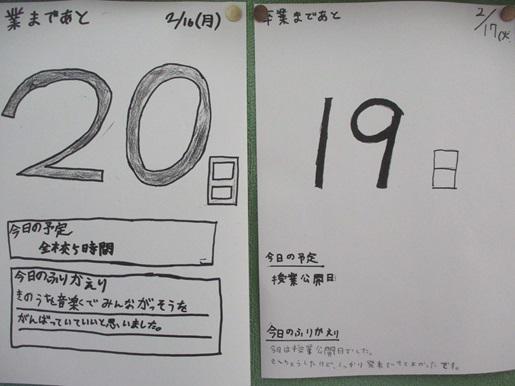 業まであと
2/16(月)
20日
今日の予定
全校5時間
今日のふりかえり
きのうを音楽でみんながっそうを
がんばっていていいと思いました。
卒業まであと
2/17(火
19日
今日の予定
授業公開日
今日のふりかえり
今日は授業公開日でした。
きんちょうしたけど、しっかり発表できてよかったです。